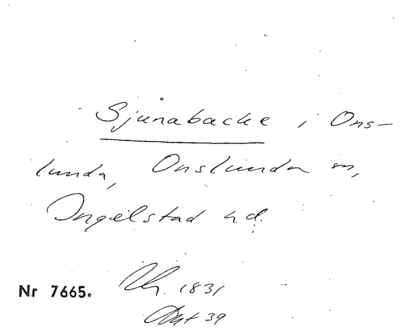 Sjunabacke i Ons-
lunda, Onslunda sn,
Ingelstad hd.
Nr 7665. 1831
39